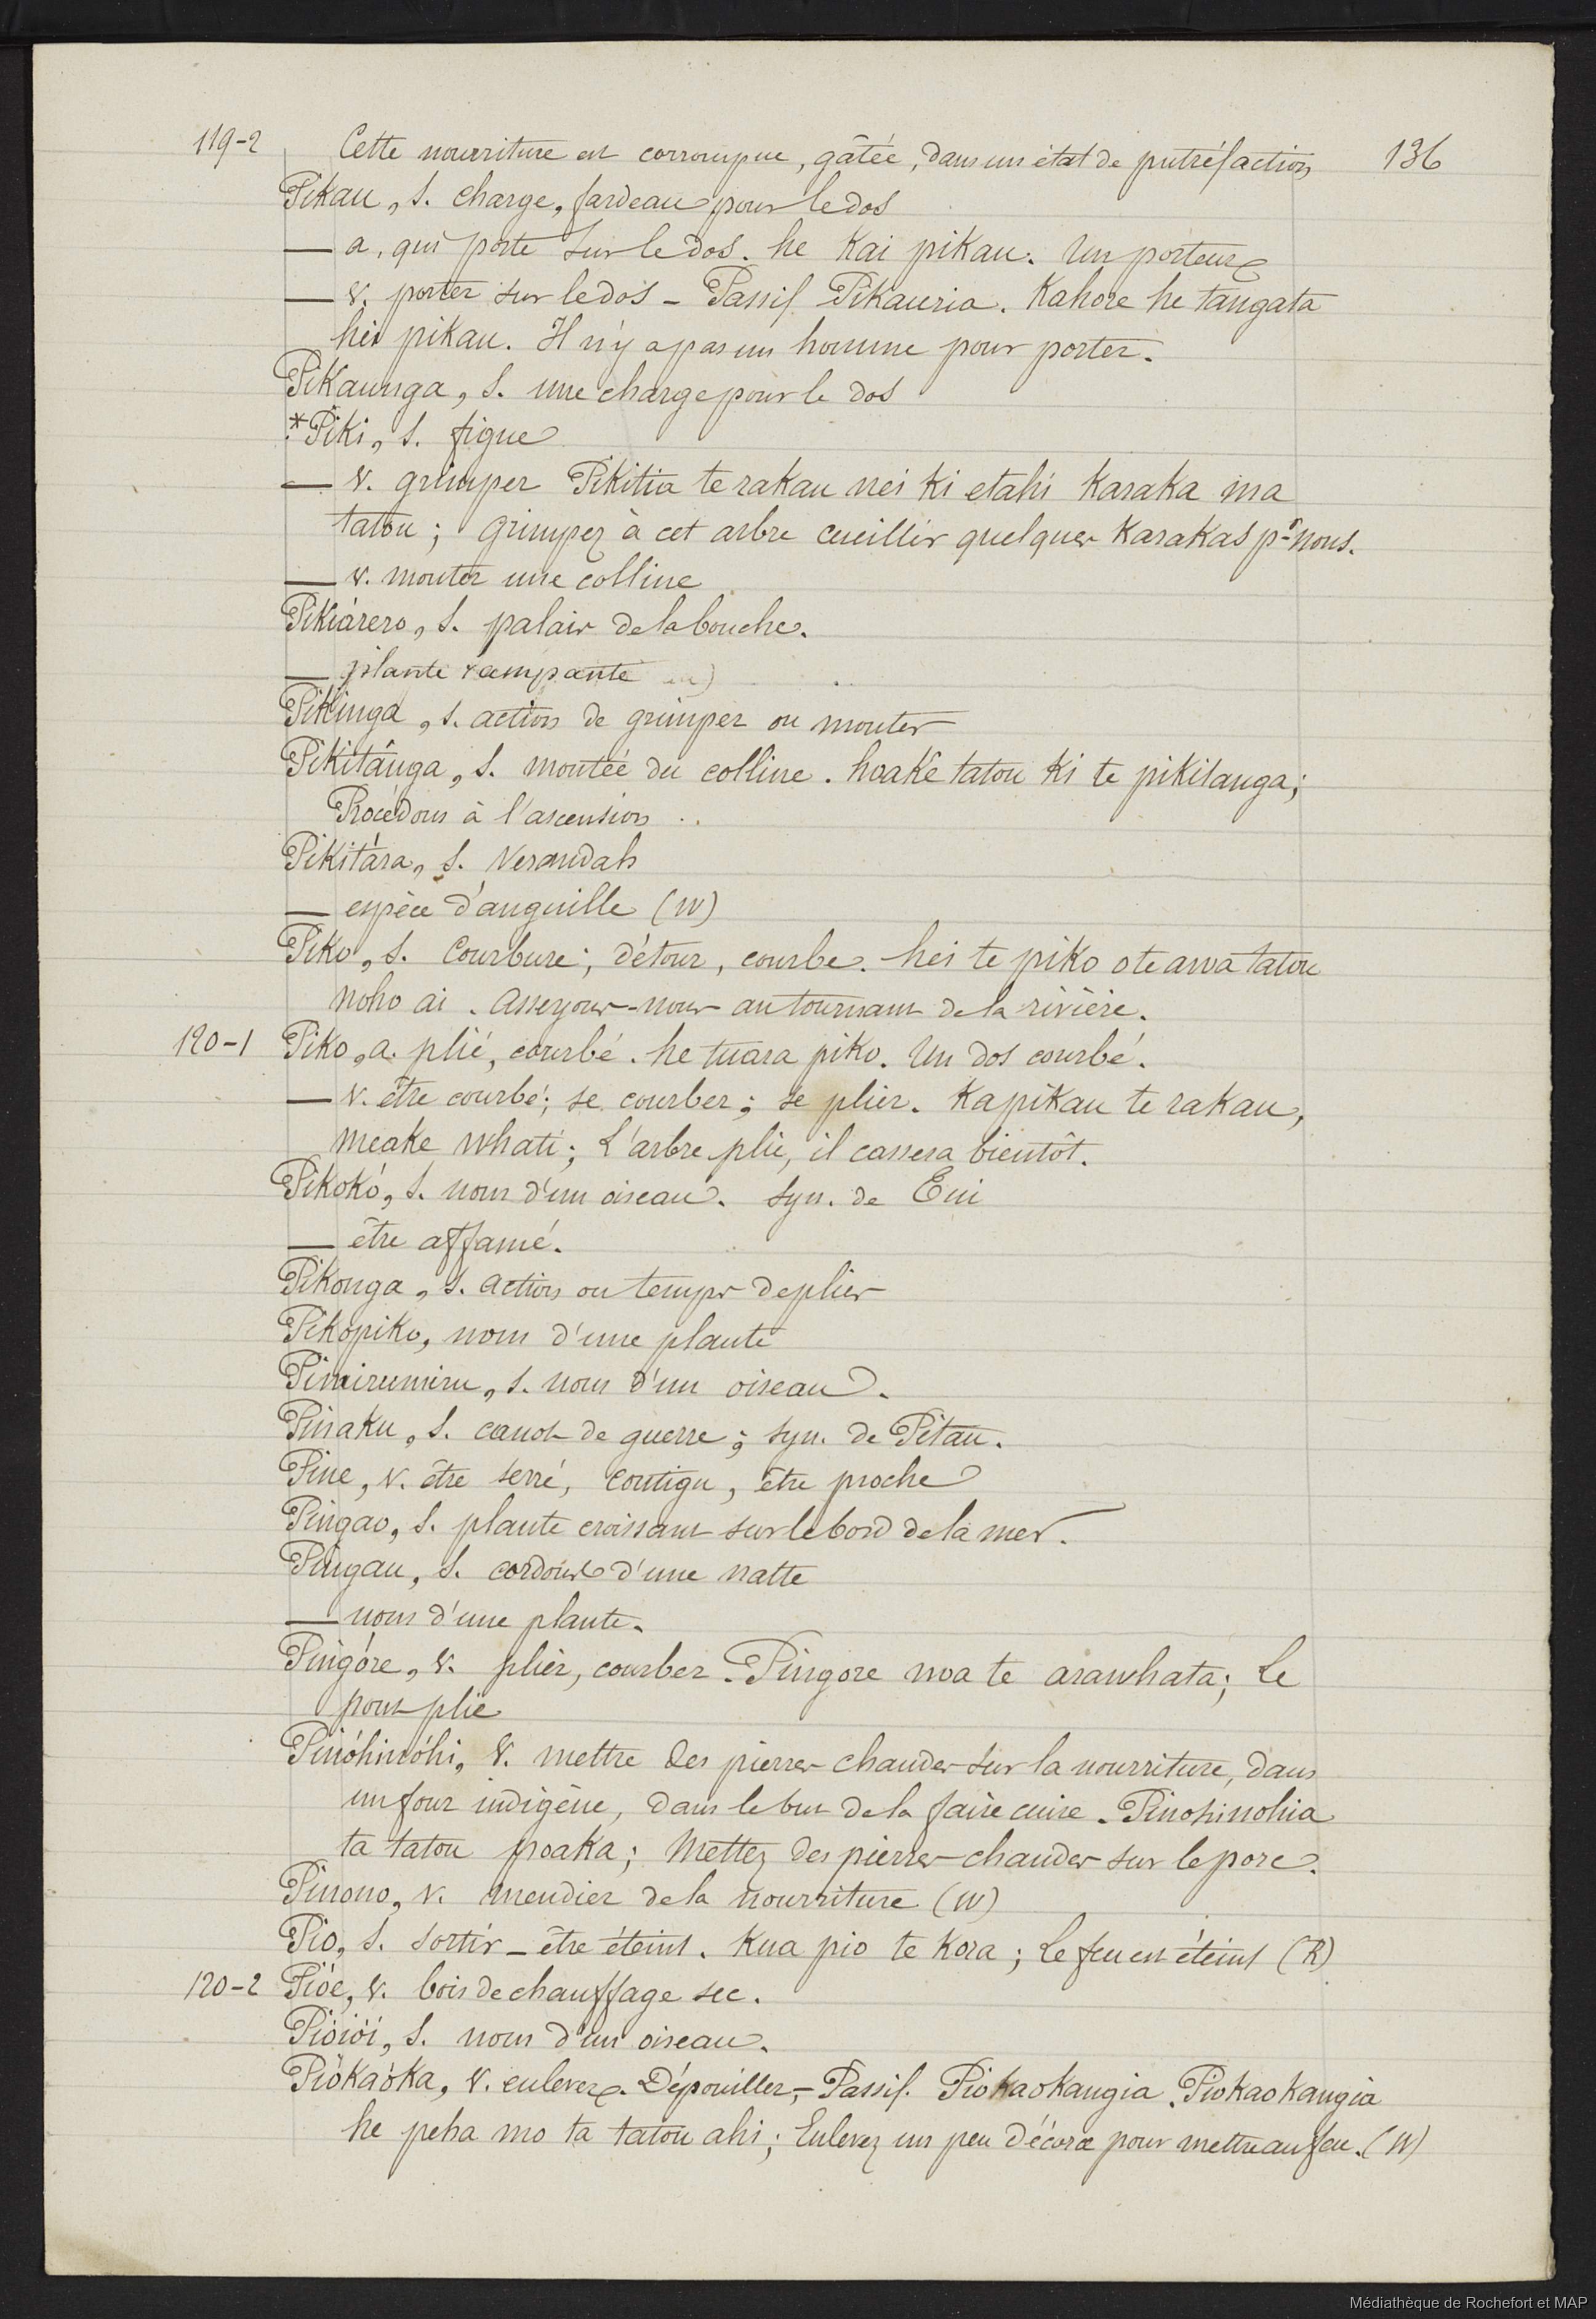 119-2 Cette nourriture est corrompue, gâtée, dans un état de putréfaction 136
Pikau, s. charge, fardeau pour le dos
— a. qui porte sur le dos. he kai pikau. Un porteur
— v. porter sur le dos – Passif Pikauria. Kahore he tangata
hei pikau. Il n'y a pas un homme pour porter.
Pikaunga, s. une charge pour le dos
*Piki, s. figue
— v. grimper Pikitia te rakau nei ki etahi karaka ma
tatou; grimpez à cet arbre cueillir quelques Karakas pr nous.
— v. monter une colline
Pikiárero, s. palais de la bouche.
— plante rampante
Pikinga, s. action de grimper ou monter
Pikitánga, s. montée du colline. hoake tatou ki te pikitanga;
Procédons à l'ascension
Pikitára, s. Verandah
— espèce d'anguille (W)
Piko, s. Courbure; détour, courbe. hei te piko o te awa tatou
noho ai. asseyons-nous au tournant de la rivière.
120-1 Piko, a. plié, courbé. he tuara piko. Un dos courbé.
— v. être courbé; se courber; se plier. Ka pikau te rakau,
meake whati; L'arbre plie, il cassera bientôt.
Pikokó, s. nom d'un oiseau. Syn. de Eui
— être affamé.
Pikonga, s. action ou temps de plier
Pikopiko, nom d'une plante
Pimirumiru, s. nom d'un oiseau.
Pinaku, s. canot de guerre; syn. de Pitau.
Pine, v. être serré, contigu, être proche
Pingao, s. plante croissant sur le bord de la mer.
Pingau, s. cordons d'une natte
— nom d'une plante.
Pingóre, v. plier, courber. Pingore noa te arawhata; Le
pont plie
Pinóhinóhi, v. mettre des pierres chaudes sur la nourriture, dans
un four indigène, dans le but de la faire cuire. Pinohinohia
ta tatou poaka; Mettez des pierres chaudes sur le porc.
Pinono, v. mendier de la nourriture (W)
Pio, s. sortir – être éteint. Kua pio te kora; Le feu est éteint (R)
120-2 Pióe, v. bois de chauffage sec.
Pióiói, s. nom d'un oiseau.
Piókaóka, v. enlever. Dépouiller, – Passif. Piokaokangia. Piokaokangia
he peha mo ta tatou ahi; Enlevez un peu d'écorce pour mettre au feu. (W)
Médiathèque de Rochefort et MAP